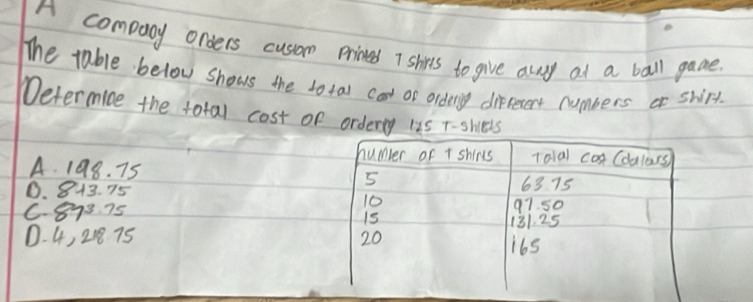 A company orders custom Printed T shirts to give away at a ball game.
The table below shows the total cost of ordering different numbers of shirt.
Determine the total cost of ordering 125 T-shirts
number of t shirts Total cost (dolars)
A. 198.75
5 63.75
B. 843.75
10 97.50
C. 873.75
15 131.25
D. 4,218.75
20 165